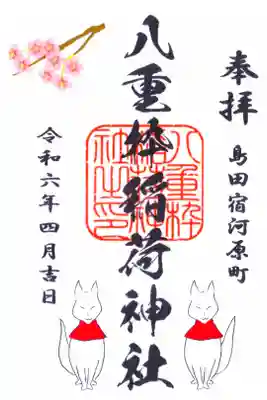 奉拝
島田宿河原町
八重枠稲荷神社
八重枠
稲荷神
社之印
令和六年四月吉日